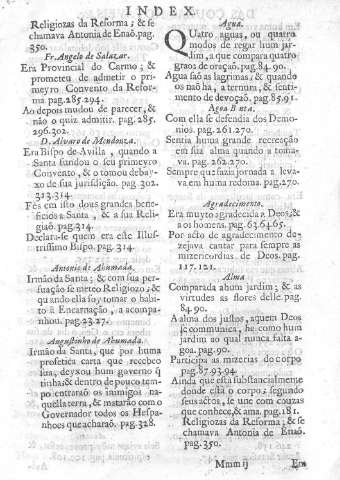 INDEX
Religiozas da Reforma; & se
chamava Antonia de Enaõ. pag.
350.
Fr. Angelo de Salazar.
Era Provincial do Carmo; &
prometeu de admetir o pri-
meyro Convento da Refor-
ma. pag. 285. 294.
Ao depois mudou de parecer, &
não o quiz admitir. pag. 285.
296. 302.
D. Alvaro de Mendonza.
Era Bispo de Avilla, quando a
Santa fundou o seu primeyro
Convento, & o tomou debay-
xo de sua jurisdição. pag. 302.
313. 314.
Fés em isto dous grandes bene-
ficios a Santa, & a sua Reli-
giaõ. pag. 314.
Declara-se quem era este Illus-
trissimo Bispo. pag. 314.
Antonio de Ahumada.
Irmão da Santa; & com sua per-
suasaõ se meteo Religiozo; &
quando ella foy tomar o habi-
to à Encarnação, a acompa-
nhou. pag. 23. 27.
Augustinho de Ahumada.
Irmão da Santa, que por huma
profetica carta que recebeo
sua, deyxou hum governo q̃
tinha: & dentro de pouco tem-
po entraraõ os inimigos na-
quella terra, & mataraõ com o
Governador todos os Hespa-
nhoes que acharaõ. pag. 328.
Agua.
QUatro aguas, ou quatro
modos de regar hum jar-
dim, a que compara quatro
graos de oraçaõ. pag. 84. 90.
Agua saõ as lagrimas; & quando
os naõ ha, a ternura, & senti-
mento de devoçaõ. pag. 85. 91.
Agua Benta.
Com ella se defendia dos Demo-
nios. pag. 261. 270.
Sentia huma grande recreação
em sua alma quando a toma-
va. pag. 262. 270.
Sempre que fazia jornada a leva-
va em huma redoma. pag. 270.
Agradecimento.
Era muyto agradecida a Deos, &
aos homens. pag. 63. 64. 65.
Por acto de agradecimento de-
zejava cantar para sempre as
mizericordias de Deos. pag.
117. 121.
Alma
Comparada a hum jardim; & as
virtudes as flores delle. pag.
84. 90.
A alma dos justos, a quem Deos
se communica, he como hum
jardim ao qual nunca falta a-
goa. pag. 90.
Participa as mizerias do corpo
pag. 87. 93. 94.
Ainda que està substancialmente
donde està o corpo; segundo
seus actos, se une com couzas
que conhece, & ama. pag. 181.
Religiozas da Reforma; & se
chamava Antonia de Enaõ.
pag. 350.
Mmm ij